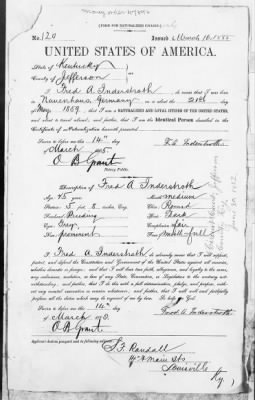 (FORM FOR NATURALIZED CITIZEN.)
No. 120 Issued March 16, 1885
UNITED STATES OF AMERICA.
State of Kentucky
County of Jefferson
I, Fred A. Inderstroth, do swear that I was born
in Germany, on or about the 21st day
of May, 1839, that I am a NATURALIZED AND LOYAL CITIZEN OF THE UNITED STATES,
and about to travel abroad; and further, that I am the Identical Person described in the
Certificate of Naturalization herewith presented.
Sworn to before me this 14th
March 1885 F. A. Inderstroth
O B Grant
Notary Public.
Description of Fred A Inderstroth
Age 45 years Mouth medium
Stature 5 feet 8 inches, Eng. Chin Round
Forehead Hair Dark
Eyes Grey Complexion fair
Nose prominent Face full
I, Fred A. Inderstroth, do solemnly swear that I will support,
protect, and defend the Constitution and Government of the United States against all enemies,
whether domestic or foreign; and that I will bear true faith, allegiance, and loyalty to the same,
any ordinance, resolution, or law of any State, Convention, or Legislature to the contrary not-
withstanding; and further, that I do this with a full determination, pledge, and purpose, with-
out any mental reservation or evasion whatsoever; and further, that I will well and faithfully
perform all the duties which may be required of me by law. So help me God.
Sworn to before me this 14th
of March 1885 Fred A. Inderstroth
O B Grant
Applicant desires passport sent to following address:
S. F. Randall
Main Sts
Louisville
Ky
Jefferson
June 30 1882